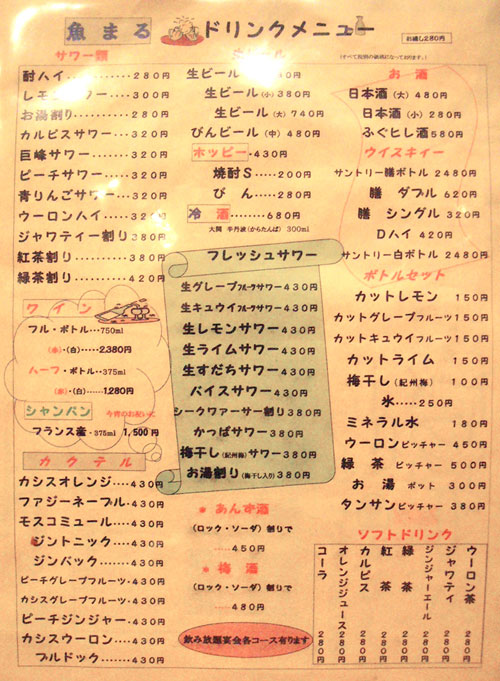 魚まる ドリンクメニュー
お通し280円
サワー類
酎ハイ・・・・・・・・・280円
レモンサワー・・・・300円
お湯割り・・・・・・・・280円
カルピスサワー・・・320円
巨峰サワー・・・・・・320円
ピーチサワー・・・・320円
青りんごサワー・・・320円
ウーロンハイ・・・・320円
ジャワティー割り・・380円
紅茶割り・・・・・・・・380円
緑茶割り・・・・・・・・420円
ワイン
フル・ボトル・・・750ml
(赤)・(白)・・・・・2,380円
ハーフ・ボトル・・375ml
(赤)・(白)・・・・・1,280円
シャンパン 今宵のお祝いに
フランス産・375ml 1,500円
カクテル
カシスオレンジ・・・・430円
ファジーネーブル・・・430円
モスコミュール・・・・430円
ジントニック・・・・430円
ジンバック・・・・・430円
ピーチグレープフルーツ・430円
カシスグレープフルーツ・430円
ピーチジンジャー・・・430円
カシスウーロン・・・・430円
ブルドック・・・・・430円
生ビール
生ビール(小)380円
生ビール(大)740円
びんビール(中)480円
ホッピー・430円
焼酎S・・・・・200円
びん・・・・・280円
冷酒・・・・・・・680円
大関 辛丹波(からたんば) 300ml
フレッシュサワー
生グレープフルーツサワー430円
生キュウイフルーツサワー430円
生レモンサワー430円
生ライムサワー430円
生すだちサワー430円
バイスサワー430円
シークヮーサー割り380円
かっぱサワー380円
梅干し(紀州梅)サワー380円
お湯割り(梅干し入り)380円
● あんず酒
(ロック・ソーダ)割りで
・・・・450円
● 梅酒
(ロック・ソーダ)割りで
・・・・480円
飲み放題宴会各コース有ります
お酒
日本酒(大)480円
日本酒(小)280円
ふぐヒレ酒580円
ウイスキィー
サントリー膳ボトル2480円
膳 ダブル 620円
膳 シングル 320円
Dハイ 420円
サントリー白ボトル2480円
ボトルセット
カットレモン 150円
カットグレープフルーツ150円
カットキュウイフルーツ150円
カットライム 150円
梅干し(紀州梅) 100円
氷・・・・・250円
ミネラル水 180円
ウーロンピッチャー 450円
緑茶ピッチャー 500円
お湯 ポット 300円
タンサンピッチャー 380円
ソフトドリンク
ウーロン茶 280円
ジャワティ 280円
ジンジャーエール 280円
緑茶 280円
紅茶 280円
カルピス 280円
オレンジジュース 280円
コーラ 280円